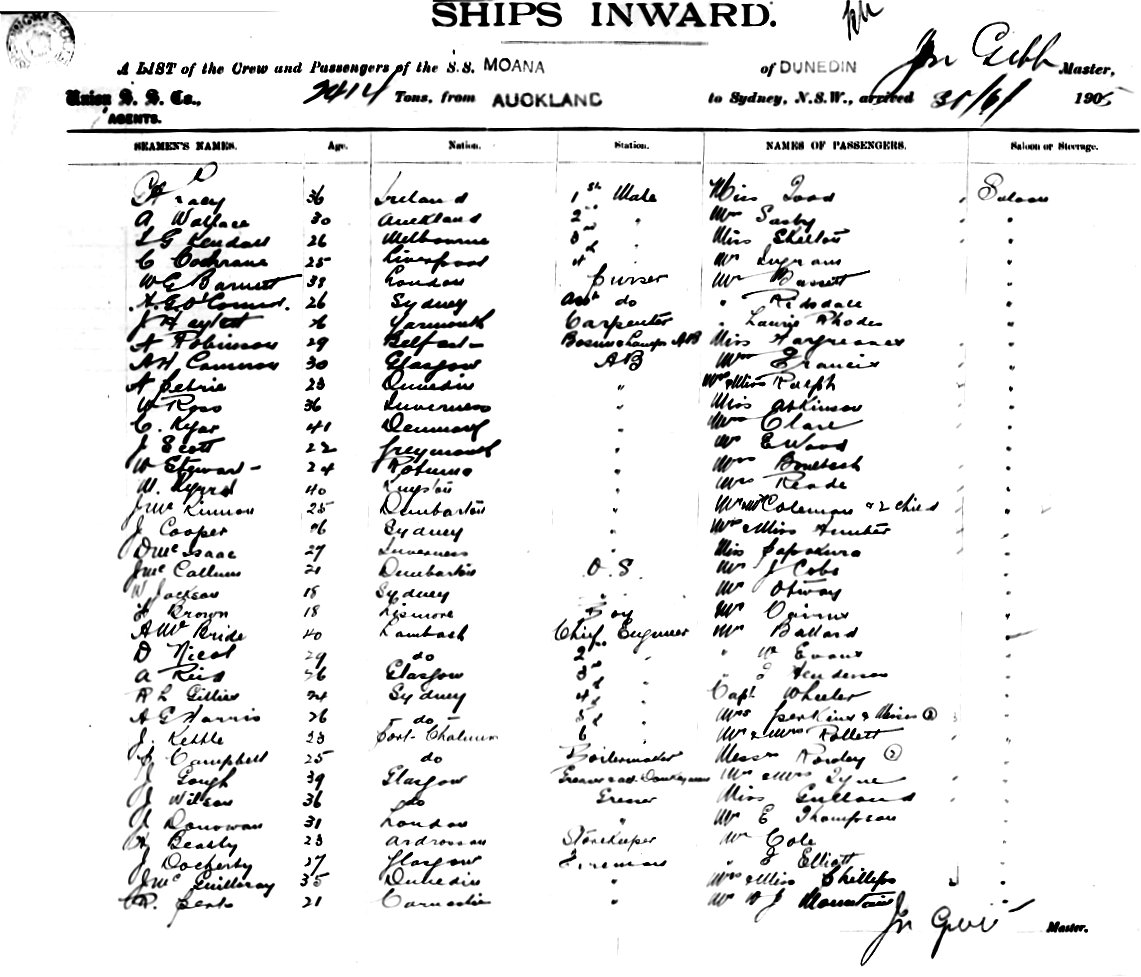 SHIPS INWARD.
A LIST of the Crew and Passengers of the S.S. MOANA of DUNEDIN Jno Gibb Master,
Union S. S. Co., 2414 Tons, from AUCKLAND to Sydney, N.S.W., arrived 1905
AGENTS.
SEAMEN'S NAMES. Age. Nation. Station. NAMES OF PASSENGERS. Saloon or Steerage.
Tracey 36 Ireland 1st Mate Miss Todd Saloon
A Wallace 30 Auckland 2nd " Mrs "
L G Kendall 26 Melbourne 3rd " Miss Skelton "
C Cochrane 25 Liverpool 4th " Mr Ingram "
W G Barnett 38 London Purser Mr Bassett "
H. G. O'Connor. 26 Sydney Asst do " Risdale "
J 26 Yarmouth Carpenter " Laurie Rhodes "
A Robinson 29 Belfast Bosun & Lamps AB Miss Hargreaves "
A H Cameron 30 Glasgow AB Mrs Francis "
A Petrie 23 Dunedin " Mrs & Miss Ralph "
W Ross 36 Inverness " Miss Atkinson "
C. Kyar 41 Denmark " Mrs Clare "
J Scott 22 Greymouth " Mr E Wood "
W Steward 24 " "
W. 40 Kingston " Mrs Reade "
J Mc Kinnon 25 Dumbarton " Coleman & 2 child "
J Cooper 26 Sydney " Mrs & Miss Hunter "
D Mc Isaac 27 Inverness " Miss "
J Mc Callum 21 Dumbarton O. S. Mr J Cobs "
W Jackson 18 Sydney " Mr Otway "
Brown 18 Lismore Boy Mr "
A Mc Bride 40 Lambash Chief Engineer Mr Ballard "
D Nicol 29 do 2nd " " W Evans "
A Reid 26 Glasgow 3rd " " Henderson "
R L Gillies 24 Sydney 4th " Capt Wheeler "
A G Harris 26 do 5th " Mrs Perkins & Misses (2) "
J. Kebble 23 Port Chalmers 6 " Mr & Mrs Pollett "
Campbell 25 do Boilermaker Messrs Rowley (2) "
J Gough 39 Glasgow Greaser & act. Donkeyman Mr & Mrs Lyne "
J Wilson 36 do Greaser Miss Gulland "
J Donowan 31 London " Mr E Thompson "
Beasly 23 Ardrossan Storekeeper Mr Cole "
J Docherby 27 Glasgow Fireman " Elliott "
J Mc Guilloray 35 Dunedin " Mrs & Miss Phillips "
R. 21 " Mr A J Mountain "
Jno Gibb Master.